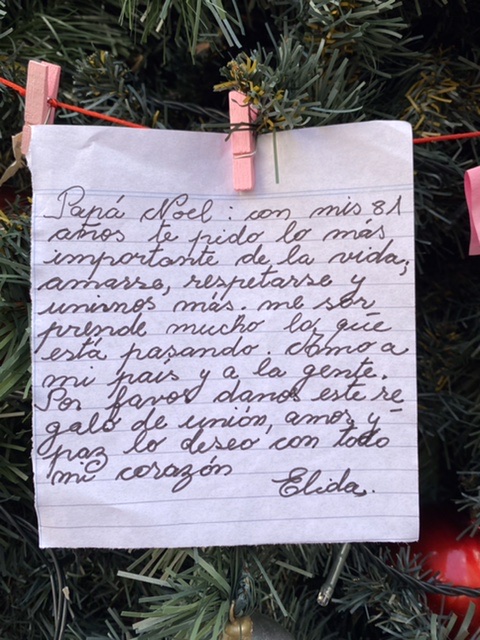 Papá Noel : con mis 81
años te pido lo más
importante de la vida;
amarse, respetarse y
unirnos más. me sor
prende mucho lo que
está pasando. Amo a
mi pais y a la gente.
Por favor danos este re
galo de unión, amor y
paz lo deseo con todo
mi corazón
Elida.